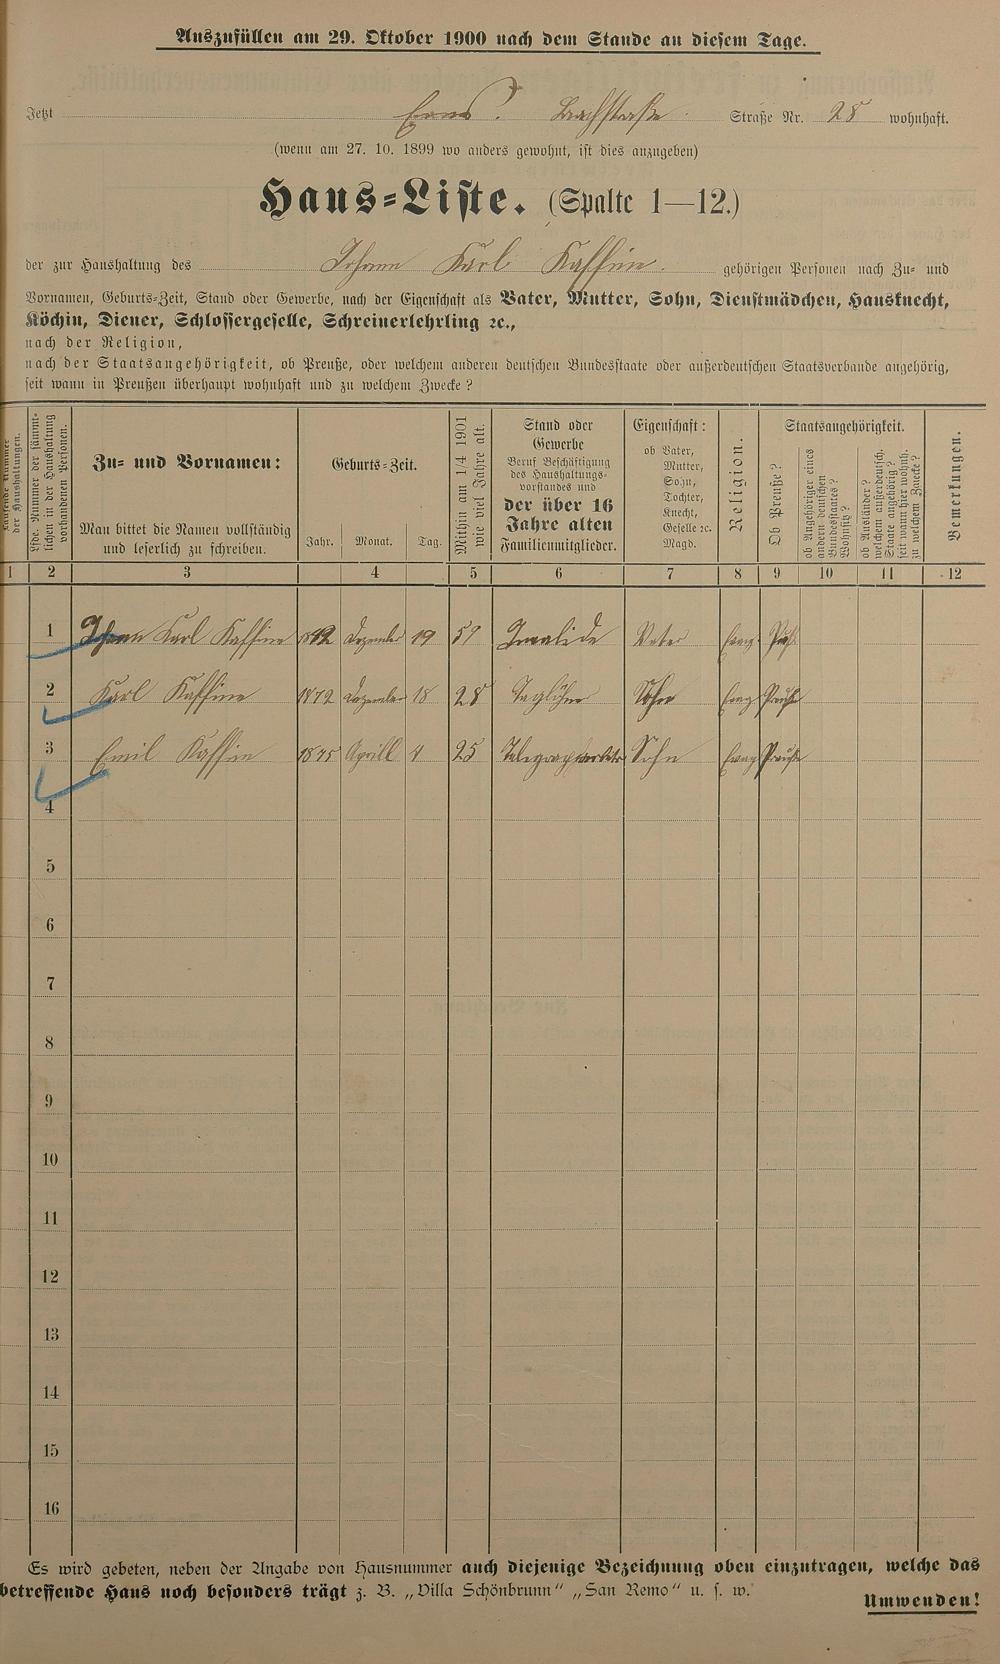 Auszufüllen am 29. Oktober 1900 nach dem Stande an diesem Tage.
Jetzt Ems. Bachstraße Straße Nr. 28 wohnhaft.
(wenn am 27. 10. 1899 wo anders gewohnt, ist dies anzugeben)
Haus-Liste. (Spalte 1—12.)
der zur Haushaltung des Johann Karl Kaffine. gehörigen Personen nach Zu- und
Vornamen, Geburts-Zeit, Stand oder Gewerbe, nach der Eigenschaft als Vater, Mutter, Sohn, Dienstmädchen, Hausknecht,
Köchin, Diener, Schlossergeselle, Schreinerlehrling ꝛc.,
nach der Religion,
nach der Staatsangehörigkeit, ob Preuße, oder welchem anderen deutschen Bundesstaate oder außerdeutschen Staatsverbande angehörig,
seit wann in Preußen überhaupt wohnhaft und zu welchem Zwecke?
Laufende Nummer
der Haushaltungen.
Lfde. Nummer der sämmt-
lichen in der Haushaltung
vorhandenen Personen.
Zu- und Vornamen:
Man bittet die Namen vollständig
und leserlich zu schreiben.
Geburts-Zeit.
Jahr. Monat. Tag.
Mithin am 1/4 1901
wie viel Jahre alt.
Stand oder
Gewerbe
Beruf Beschäftigung
des Haushaltungs-
vorstandes und
der über 16
Jahre alten
Familienmitglieder.
Eigenschaft:
ob Vater,
Mutter,
Sohn,
Tochter,
Knecht,
Geselle ꝛc.
Magd.
Religion.
Staatsangehörigkeit.
Ob Preuße?
ob Angehöriger eines
andern deutschen
Bundesstaates?
Wohnsitz?
ob Ausländer?
welchem außerdeutsch.
Staate angehörig?
seit wann hier wohnh.
zu welchem Zwecke?
Bemerkungen.
1 2 3 4 5 6 7 8 9 10 11 12
1 Johann Karl Kaffine Dezember 19 Invalide Vater Evang.
2 Karl Kaffine 1872 Dezember 18 28 Taglöhner Sohn Evang Preuße
3 Emil Kaffine 1875 Aprill 4 25 Telegraphenarbeiter Sohn Evang Preuße
4
5
6
7
8
9
10
11
12
13
14
15
16
Es wird gebeten, neben der Angabe von Hausnummer auch diejenige Bezeichnung oben einzutragen, welche das
betreffende Haus noch besonders trägt z. B. „Villa Schönbrunn“ „San Remo“ u. s. w.
Umwenden!